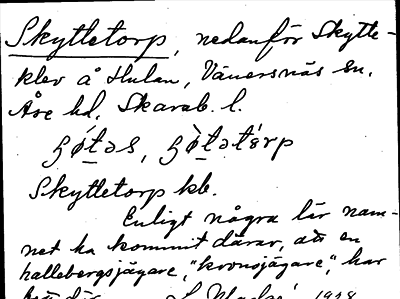 Skyttetorp, nedanför Skytte-
klev å Hulan, Vänersnäs sn.
Åse hd, Skarab. l.
Skyttetorp kb.
Enligt några lär nam-
net ha kommit därav, att en
hallebergsjägare, "kronojägare", har
bott där